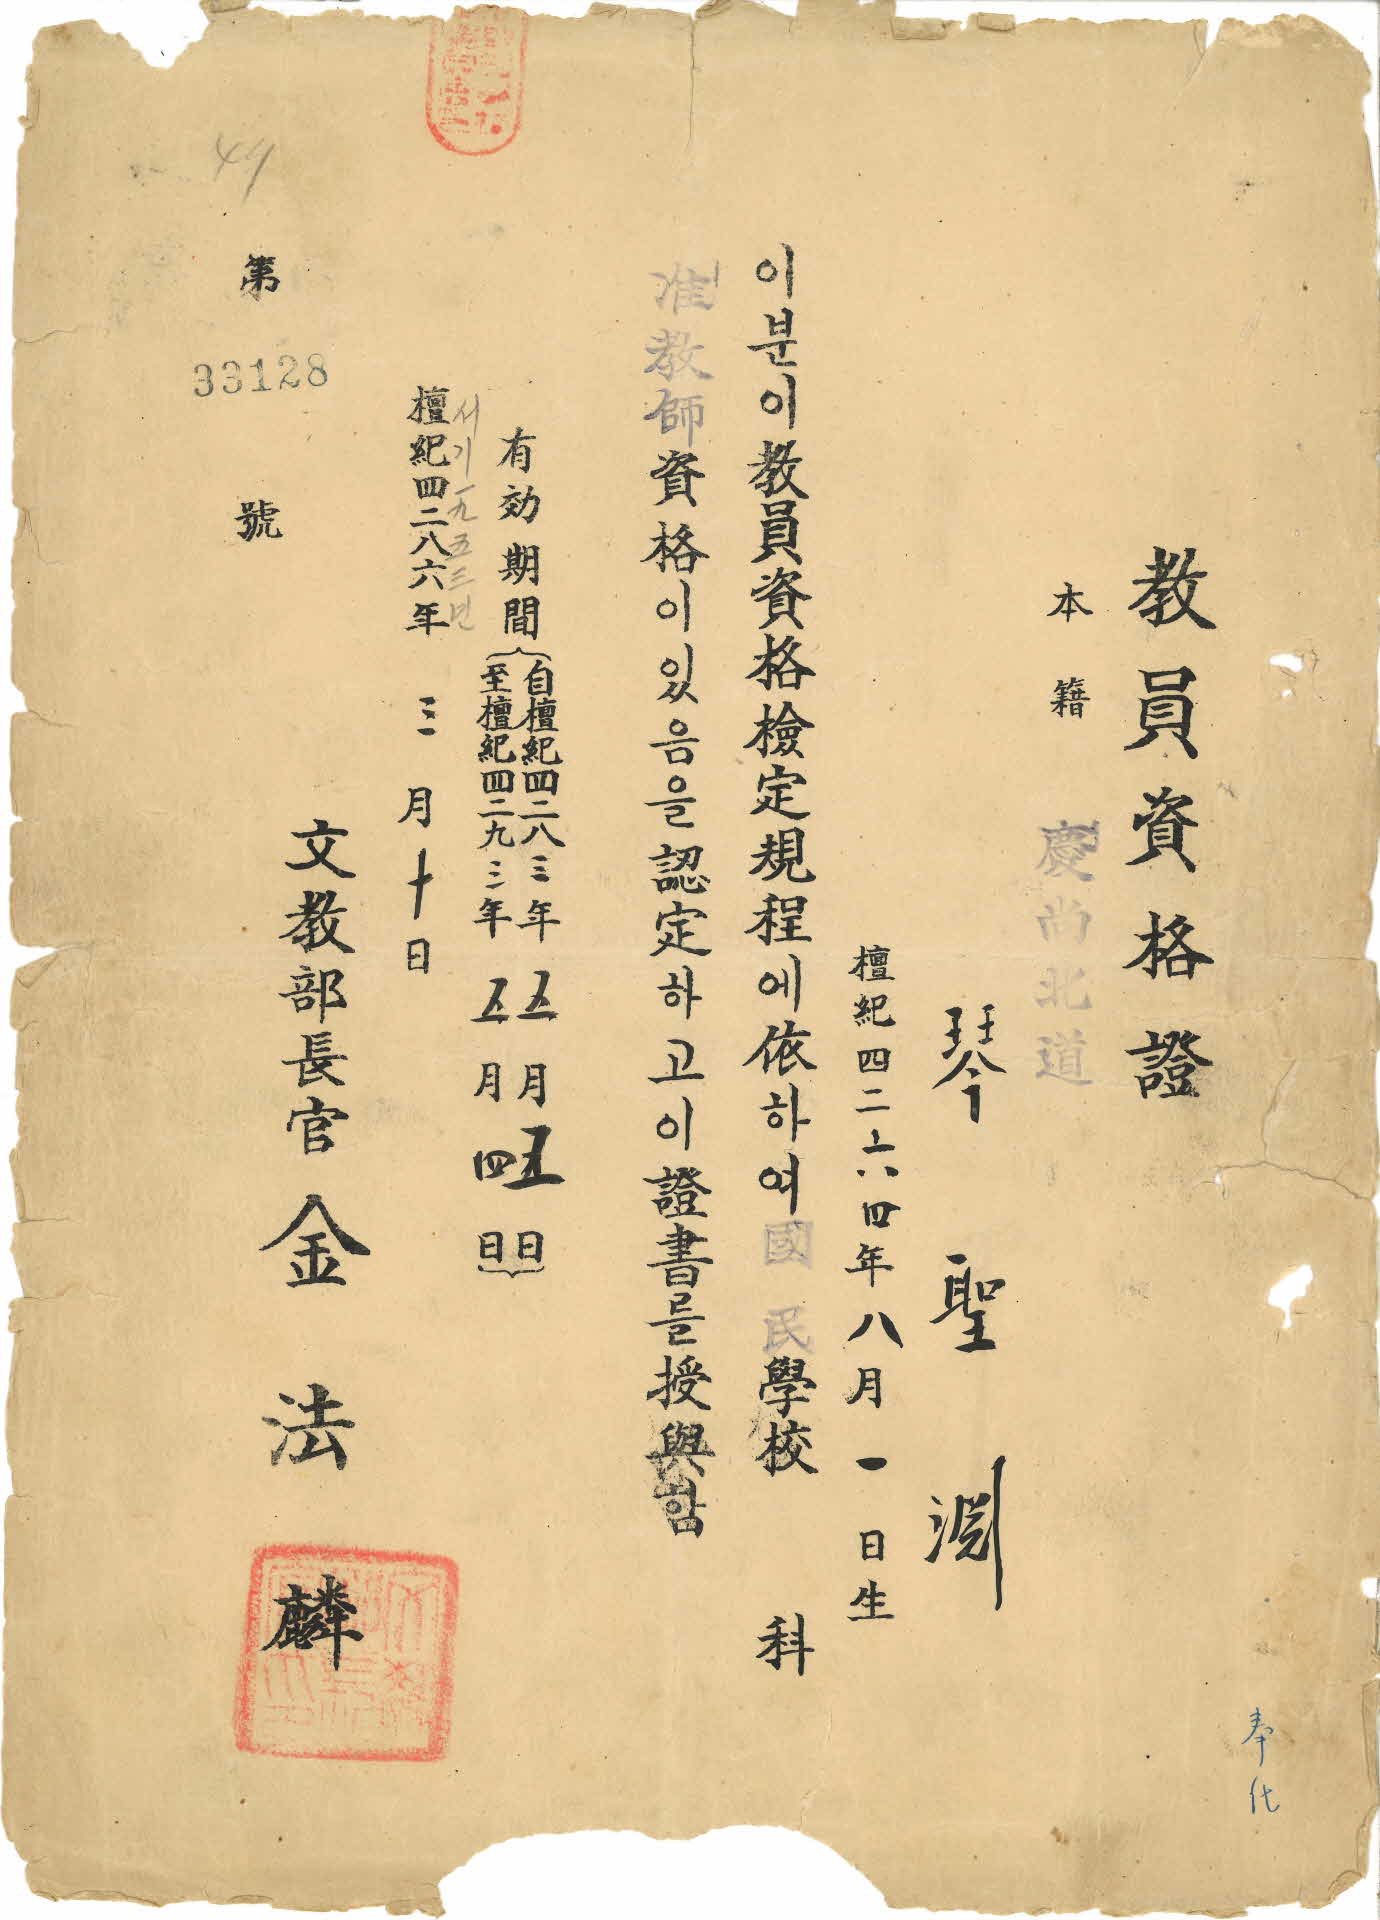 教員資格證
本籍 慶尚北道
琴聖淵
檀紀四二六四年八月一日生
이분이教員資格檢定規程에依하여國民學校 科
准教師資格이있음을認定하고이證書를授與함
有効期間
自檀紀四二八三年五月五日
至檀紀四二九三年五月四日
서기一九五三년
檀紀四二八六年三月十日
文教部長官金法麟
第33128號
49
奉化